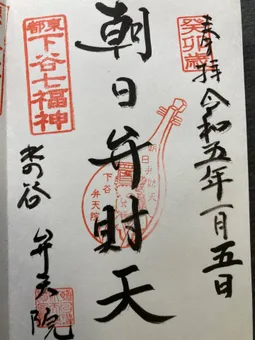 奉拝 令和五年一月五日
癸卯歳
朝日弁財天
朝日弁財天
下谷
弁天院
東都
下谷七福神
谷 弁天院